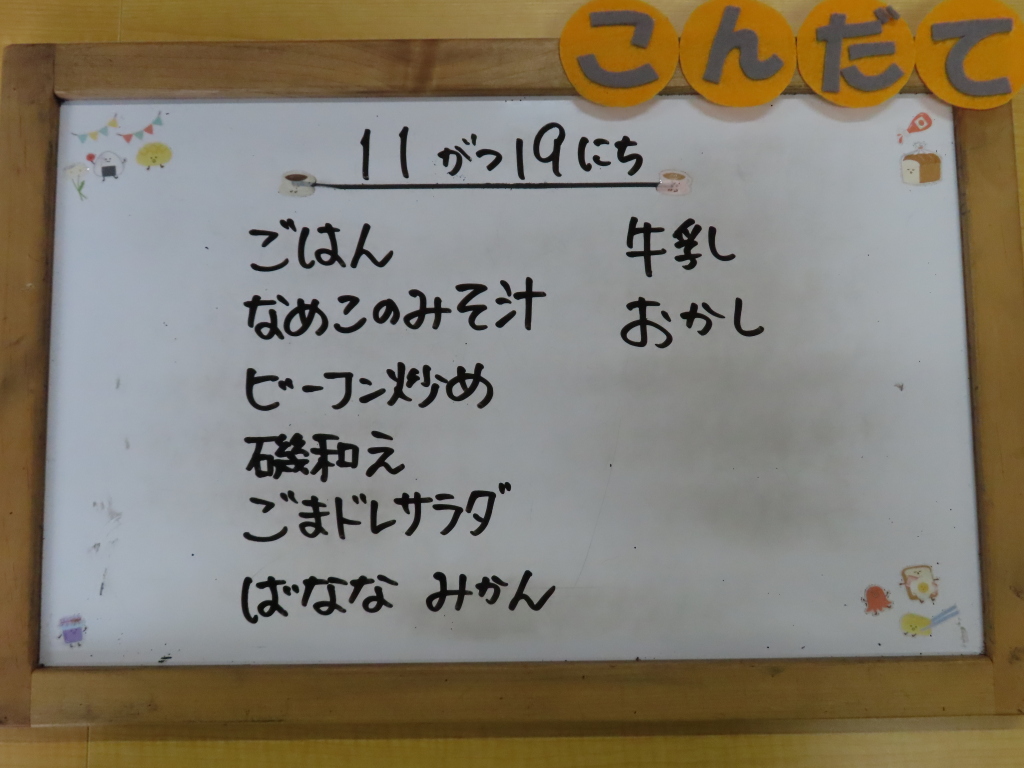 こんだて
11がつ19にち
ごはん
なめこのみそ汁
ビーフン炒め
磯和え
ごまドレサラダ
ばなな みかん
牛乳
おかし